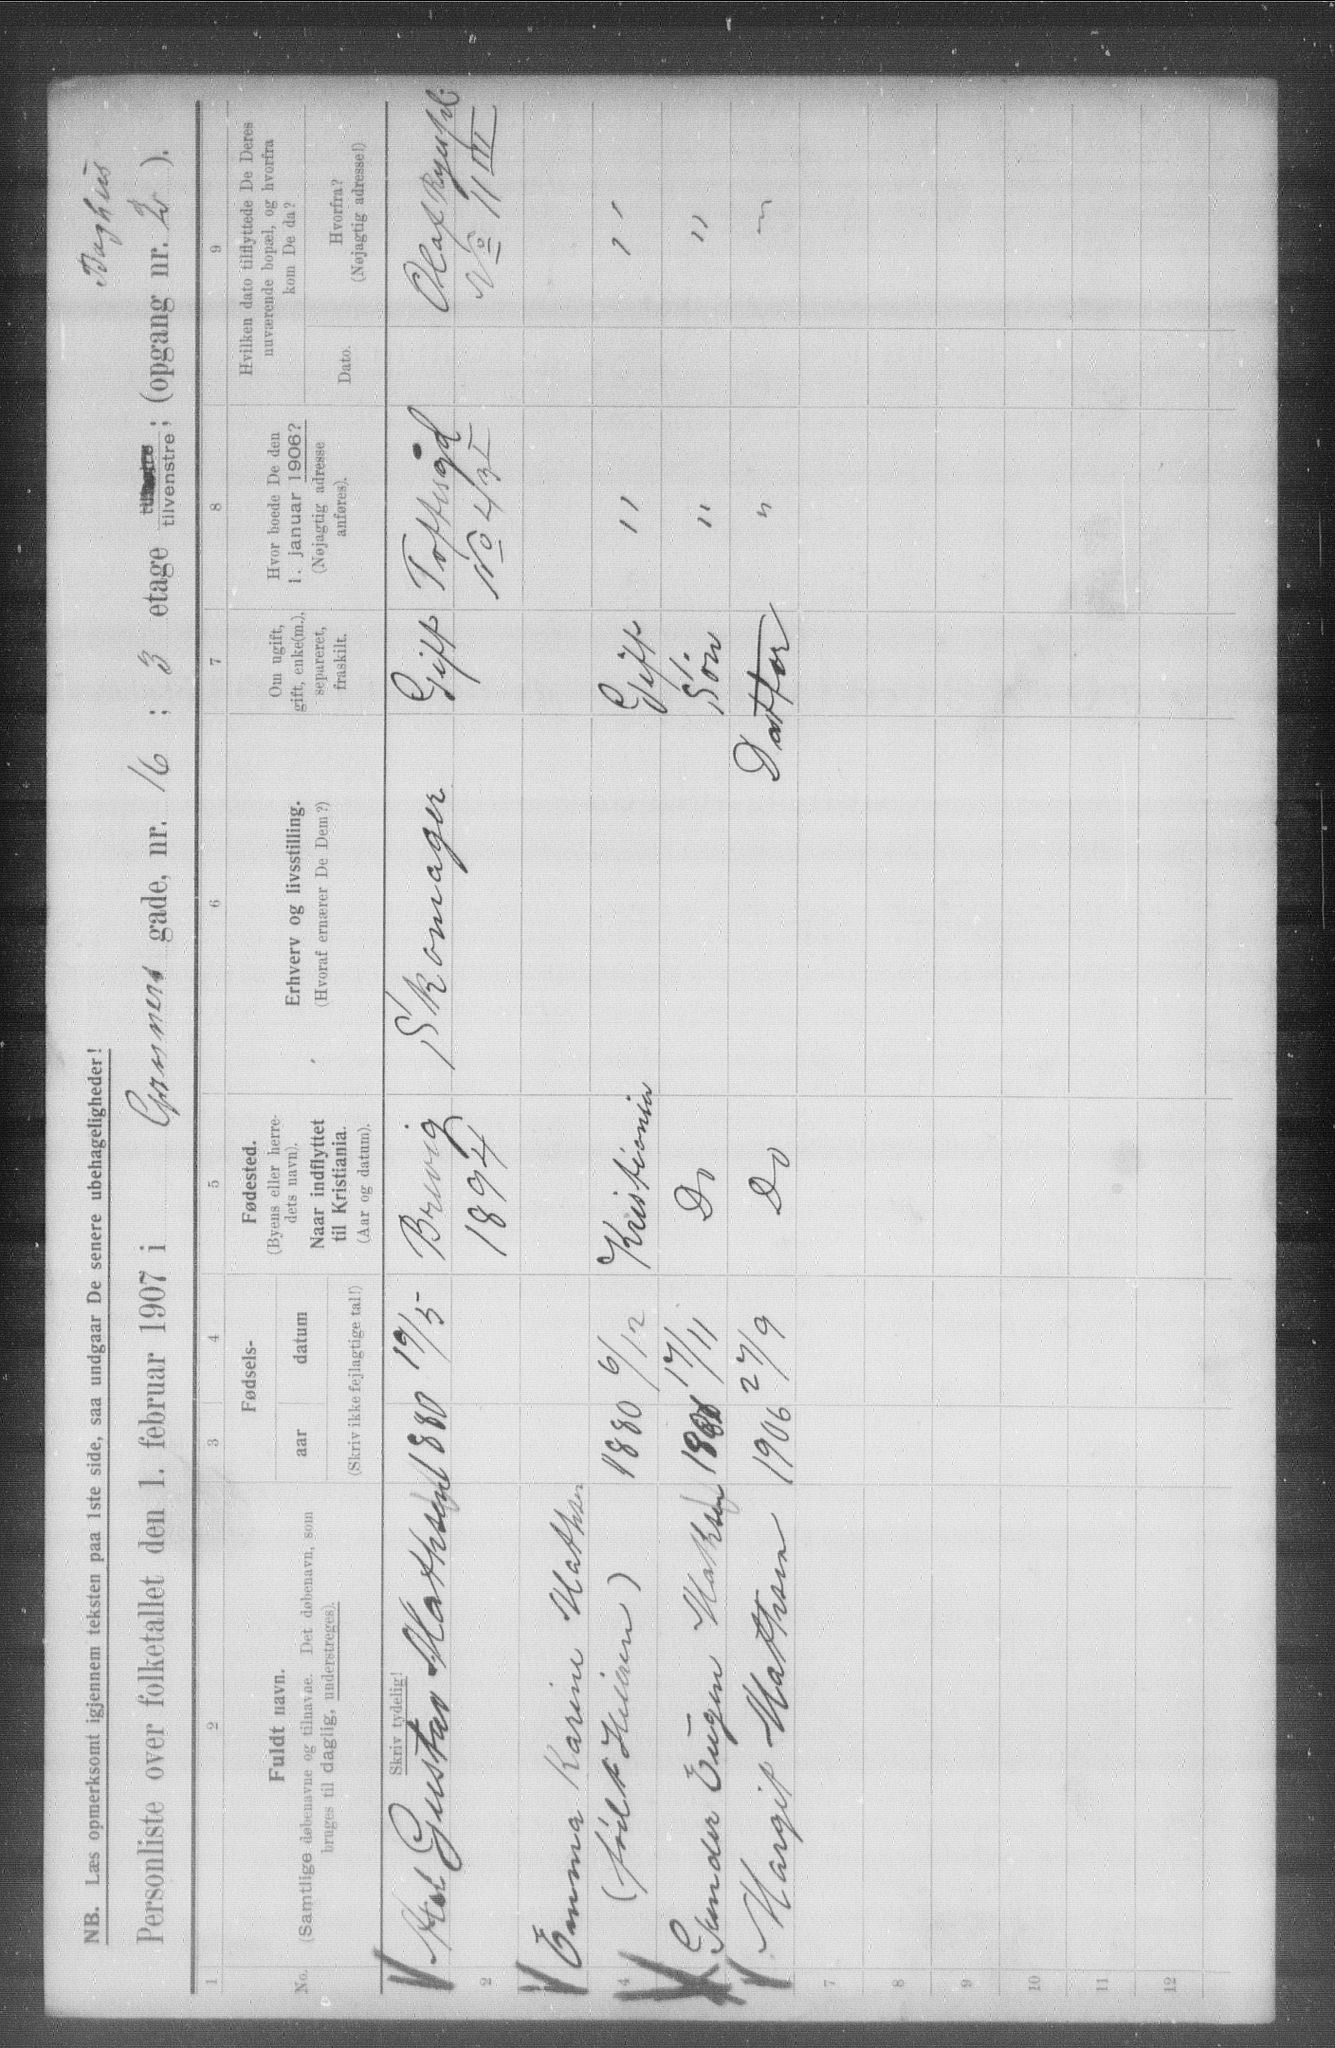 NB. Læs opmerksomt igjennem teksten paa 1ste side, saa undgaar De senere ubehageligheder!
Baghus
Personliste over folketallet den 1. februar 1907 i Grüners gade, nr. 16 ; 3 etage tilvenstre; (opgang nr. 2 ).
1 2 3 4 5 6 7 8 9
No.
Fuldt navn.
(Samtlige døbenavne og tilnavne. Det døbenavn, som
bruges til daglig, understreges).
Fødsels-
aar datum
(Skriv ikke fejlagtige tal!)
Fødested.
(Byens eller herre-
dets navn).
Naar indflyttet
til Kristiania.
(Aar og datum).
Erhverv og livsstilling.
(Hvoraf ernærer De Dem?)
Om ugift,
gift, enke(m.),
separeret,
fraskilt.
Hvor boede De den
1. januar 1906?
(Nøjagtig adresse
anføres).
Hvilken dato tilflyttede De Deres
nuværende bopæl, og hvorfra
kom De da?
Dato.
Hvorfra?
(Nøjagtig adresse!)
Skriv tydelig!
Gustav Mathsen 1880 19/5 Brevig Skomager Gift Toftesgd Olaf Ryespl:
2 1894 No 43 I No 11 III
Emma Karine Mathsen
4 (født ) 1880 6/12 Kristiania Gift " "
Gunder Eugen Mathsen 17/11 Do Søn " "
Margit Mathsen 1906 27/9 Do Datter " "
7
8
9
10
11
12